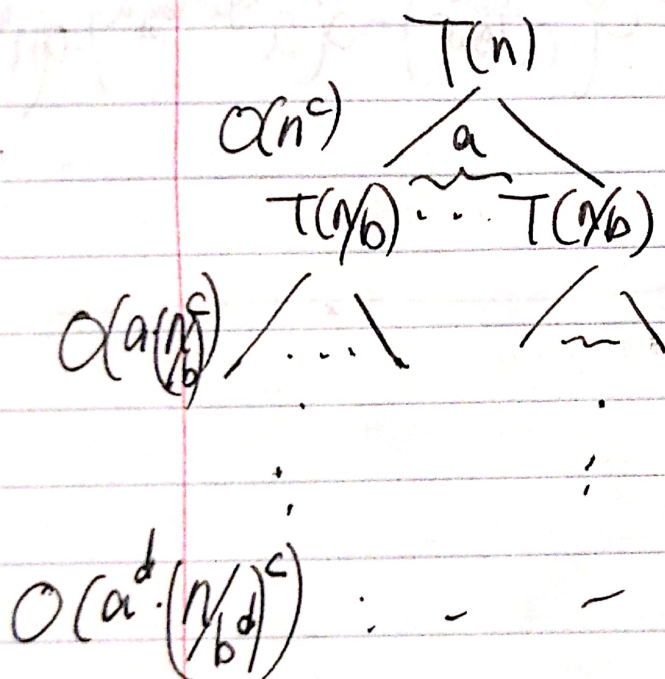 T(n)
O(n^c) a
T(n/b) ... T(n/b)
O(a·(n/b)^c) ...
O(a^d·(n/b^d)^c)